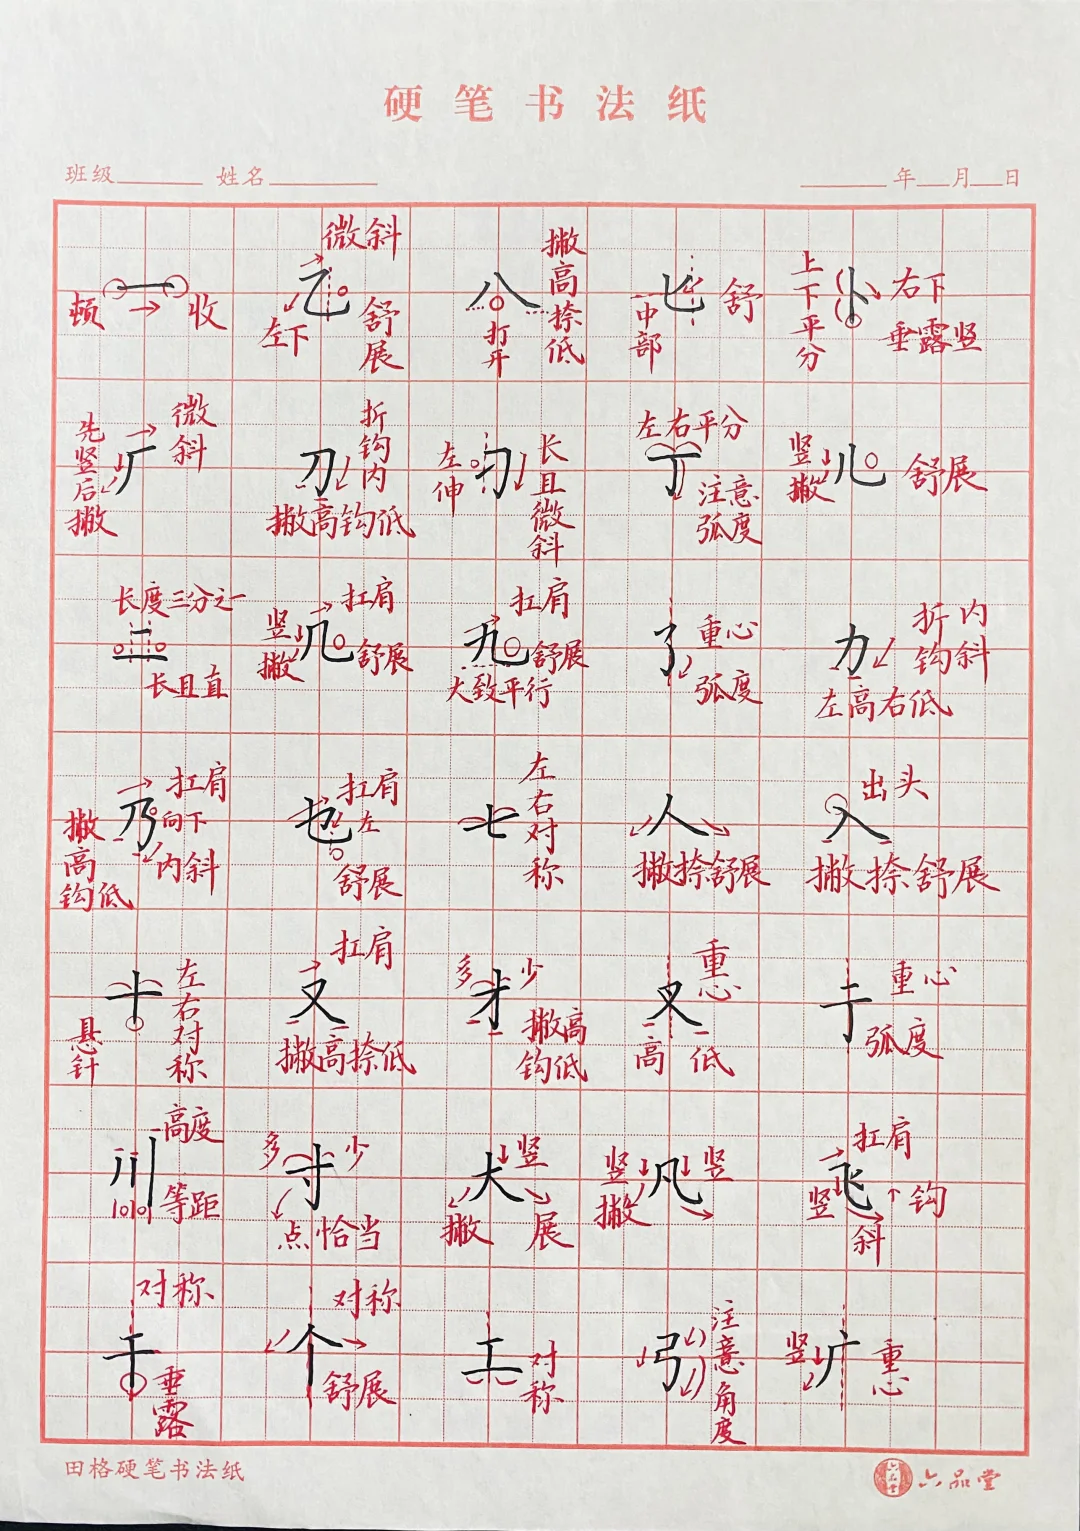 硬笔书法纸
班级 姓名 年 月 日
一 顿 收
乙 微斜 左下 舒展
八 撇高捺低 打开
匕 中部 舒
卜 上下平分 右下 垂露竖
厂 先竖后撇 微斜
刀 折钩内 撇高钩低
刁 左伸 长且微斜
丁 左右平分 注意弧度
儿 竖撇 舒展
二 长度三分之一 长且直
几 竖撇 扛肩 舒展
九 扛肩 舒展 大致平行
了 重心 弧度
力 折内钩斜 左高右低
乃 扛肩 向下 内斜 撇高钩低
也 扛肩 左 舒展
七 左右对称
人 撇捺舒展
入 出头 撇捺舒展
十 左右对称 悬针
又 扛肩 撇高捺低
才 多 少 撇高钩低
叉 重心 高 低
于 重心 弧度
川 高度 等距
寸 多 少 点恰当
大 竖 撇 展
凡 竖撇 竖
飞 扛肩 竖 钩 斜
干 对称 垂露
个 对称 舒展
工 对称
弓 注意角度
广 竖 重心
田格硬笔书法纸
六品堂
六品堂